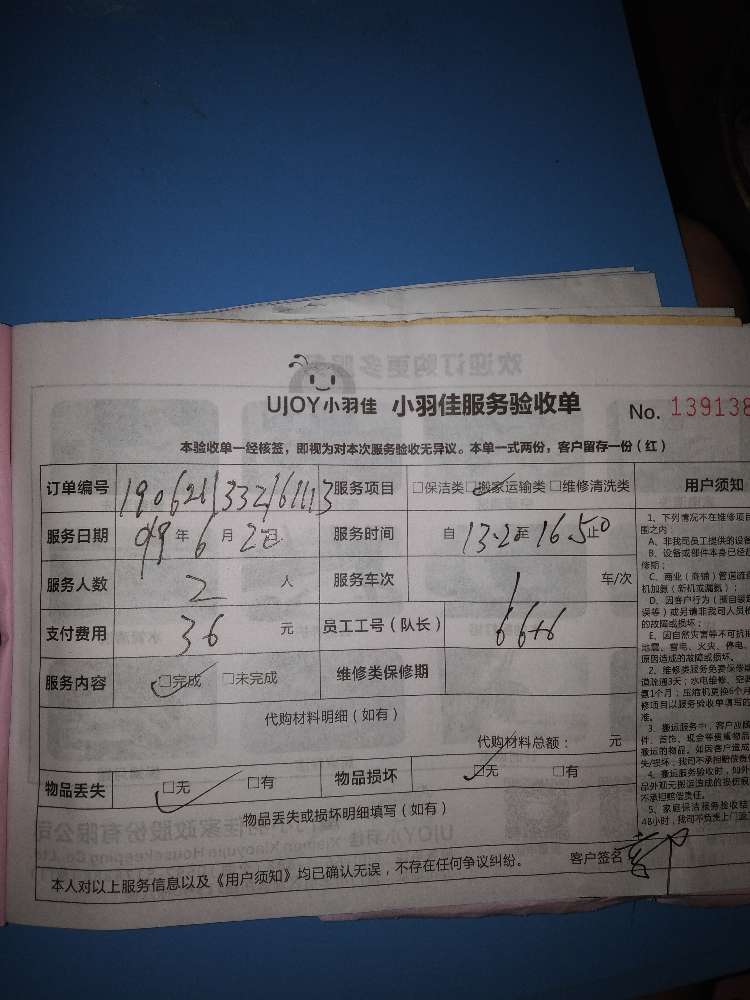 UJOY小羽佳 小羽佳服务验收单 No. 139138
本验收单一经核签，即视为对本次服务验收无异议。本单一式两份，客户留存一份（红）
订单编号 服务项目 □保洁类 □搬家运输类 □维修清洗类 用户须知
服务日期 年 6 月 日 服务时间 自 13.20 至 16.50 止
服务人数 2 人 服务车次 1 车/次
支付费用 36 元 员工工号（队长）
服务内容 □完成 □未完成 维修类保修期
代购材料明细（如有）
代购材料总额： 元
物品丢失 □无 □有 物品损坏 □无 □有
物品丢失或损坏明细填写（如有）
本人对以上服务信息以及《用户须知》均已确认无误，不存在任何争议纠纷。 客户签名
1、下列情况不在维修项
围之内
A、非我司员工提供的设备
B、设备或部件本身已经超
修期；
C、商业（商铺）管道疏通
机加氨（新机或漏氨）；
D、因客户行为（擅自
误等）或另请非我司人员
的故障或损坏；
E、因自然灾害等不可抗
地震、雷电、火灾、停电、
原因造成的故障或损坏。
2、维修类服务免费保修
道疏通3天；水电维修、空调
氨1个月；压缩机更换6个月
修项目以服务验收单填写的
准。
3、搬运服务中，客户应
件、首饰、现金等贵重物品
搬运的物品，如因客户造成
失/损坏，我司不承担赔偿责
4、搬运服务验收时，如外
品外观无搬运造成的损伤
不承担赔偿责任。
5、家庭保洁服务验收
48小时，我司不负责上门